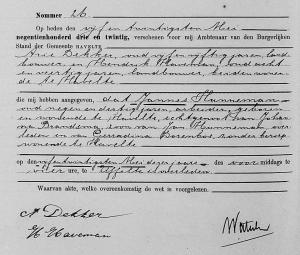 Nummer 26
Op heden den vijf en twintigsten Mei
negentienhonderd drie en twintig, verscheen voor mij Ambtenaar van den Burgerlijken
Stand der Gemeente HAVELTE
Arie Dekker, oud vijf en vijftig jaren, land-
bouwer en Hendrik Haveman, oud acht
en veertig jaren, landbouwer, beiden wonen-
de te Havelte
die mij hebben aangegeven, dat Jannes Hunneman
oud negen en dertig jaren, arbeider, geboren
en wonende te Havelte, echtgenoot van Johan-
na Brandsma, zoon van Jan Hunneman, over-
leden en van Gerradina zonder beroep
wonende te Havelte
op den vijf en twintigsten Mei dezes jaars des voor middags te
vier ure, te Uffelte is overleden.
Waarvan akte, welke overeenkomstig de wet is voorgelezen.
A Dekker
H Haveman